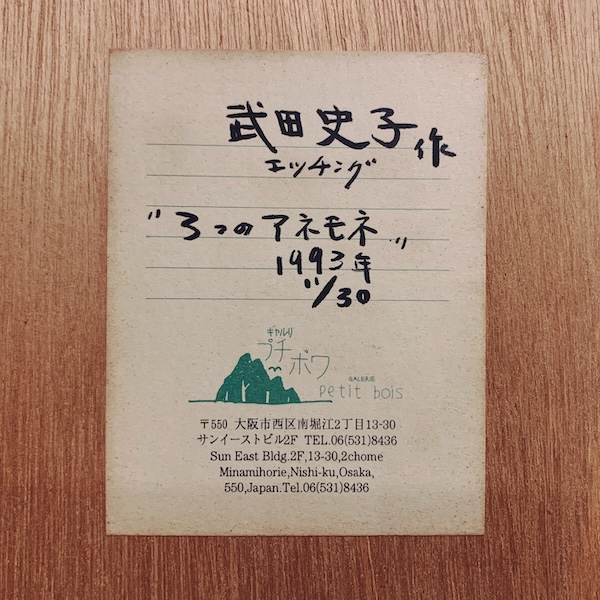 武田史子作
エッチング
"3つのアネモネ"
1993年
11/30
ギャルリ
プチボワ
GALERIE
petit bois
〒550 大阪市西区南堀江2丁目13-30
サンイーストビル2F TEL.06(531)8436
Sun East Bldg.2F,13-30,2chome
Minamihorie,Nishi-ku,Osaka,
550,Japan.Tel.06(531)8436